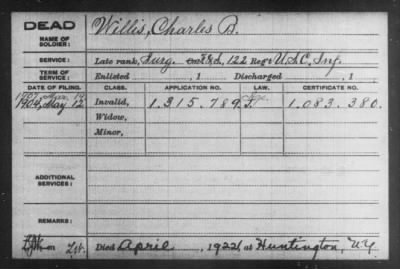 DEAD
NAME OF SOLDIER: Willis, Charles B.
SERVICE: Late rank, Surg. 122 Reg't U.S.C. Inf.
TERM OF SERVICE: Enlisted , 1 Discharged , 1
DATE OF FILING. CLASS. APPLICATION NO. LAW. CERTIFICATE NO.
1907
1904, May 12 Invalid, 1.315.789 1.083.380.
Widow,
Minor,
ADDITIONAL SERVICES:
REMARKS:
Died April , 1922, at Huntington, N.Y.